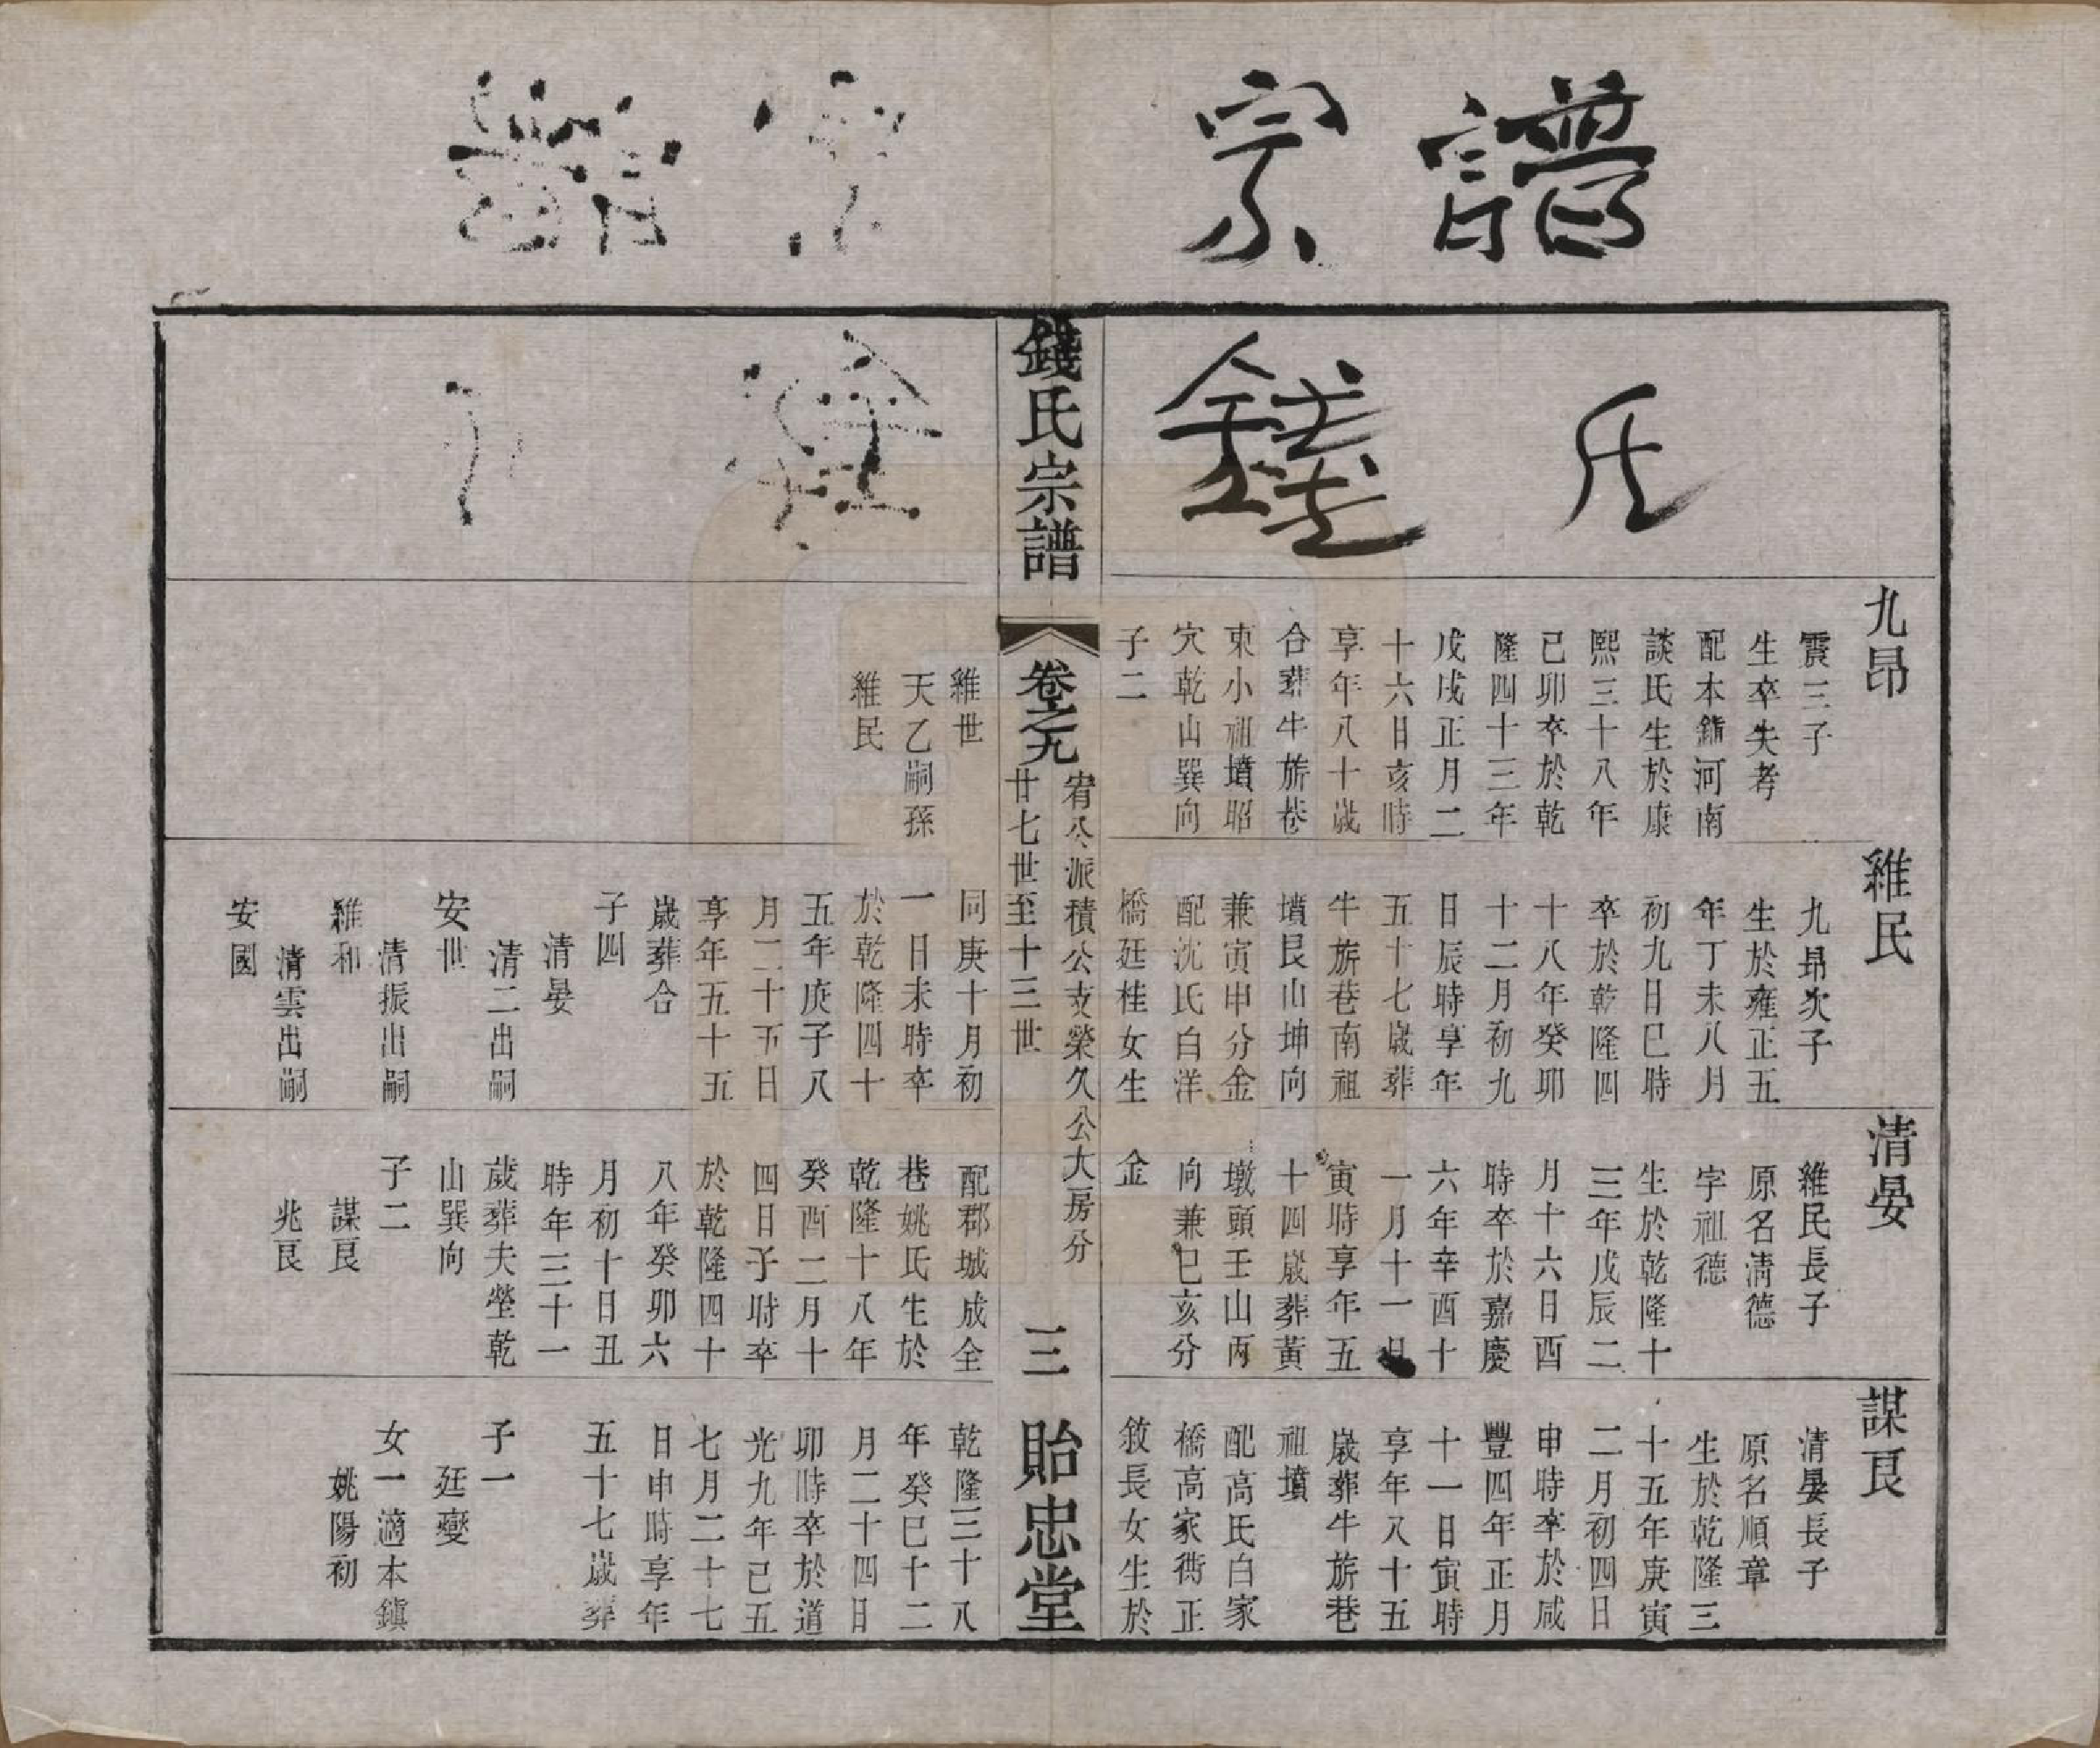 宗譜
錢氏
九昂
震三子
生卒失考
配本鎮河南
談氏生於康
熙三十八年
己卯卒於乾
隆四十三年
戊戌正月二
十六日亥時
享年八十歲
合葬牛旂巷
東小祖墳昭
穴乾山巽向
子二
維世
天乙嗣孫
維民
維民
九昂次子
生於雍正五
年丁未八月
初九日巳時
卒於乾隆四
十八年癸卯
十二月初九
日辰時享年
五十七歲葬
牛旂巷南祖
墳艮山坤向
兼寅申分金
配沈氏白洋
橋廷桂女生
同庚十月初
一日未時卒
於乾隆四十
五年庚子八
月二十五日
享年五十五
歲葬合
子四
清晏
清二出嗣
安世
清振出嗣
維和
清雲出嗣
安國
清晏
維民長子
原名清德
字祖德
生於乾隆十
三年戊辰二
月十六日酉
時卒於嘉慶
六年辛酉十
一月十一日
寅時享年五
十四歲葬黃
墩頭壬山丙
向兼巳亥分
金
配郡城成全
巷姚氏生於
乾隆十八年
癸酉二月十
四日子時卒
於乾隆四十
八年癸卯六
月初十日丑
時年三十一
歲葬夫塋乾
山巽向
子二
謀艮
兆艮
謀艮
清晏長子
原名順章
生於乾隆三
十五年庚寅
二月初四日
申時卒於咸
豐四年正月
十一日寅時
享年八十五
歲葬牛旂巷
祖墳
配高氏白家
橋高家衖正
敘長女生於
乾隆三十八
年癸巳十二
月二十四日
卯時卒於道
光九年己五
七月二十七
日申時享年
五十七歲葬
子一
廷燮
女一適本鎮
姚陽初
錢氏宗譜
卷之九
宥公派積公支榮久公大房分
廿七世至十三世
三
貽忠堂